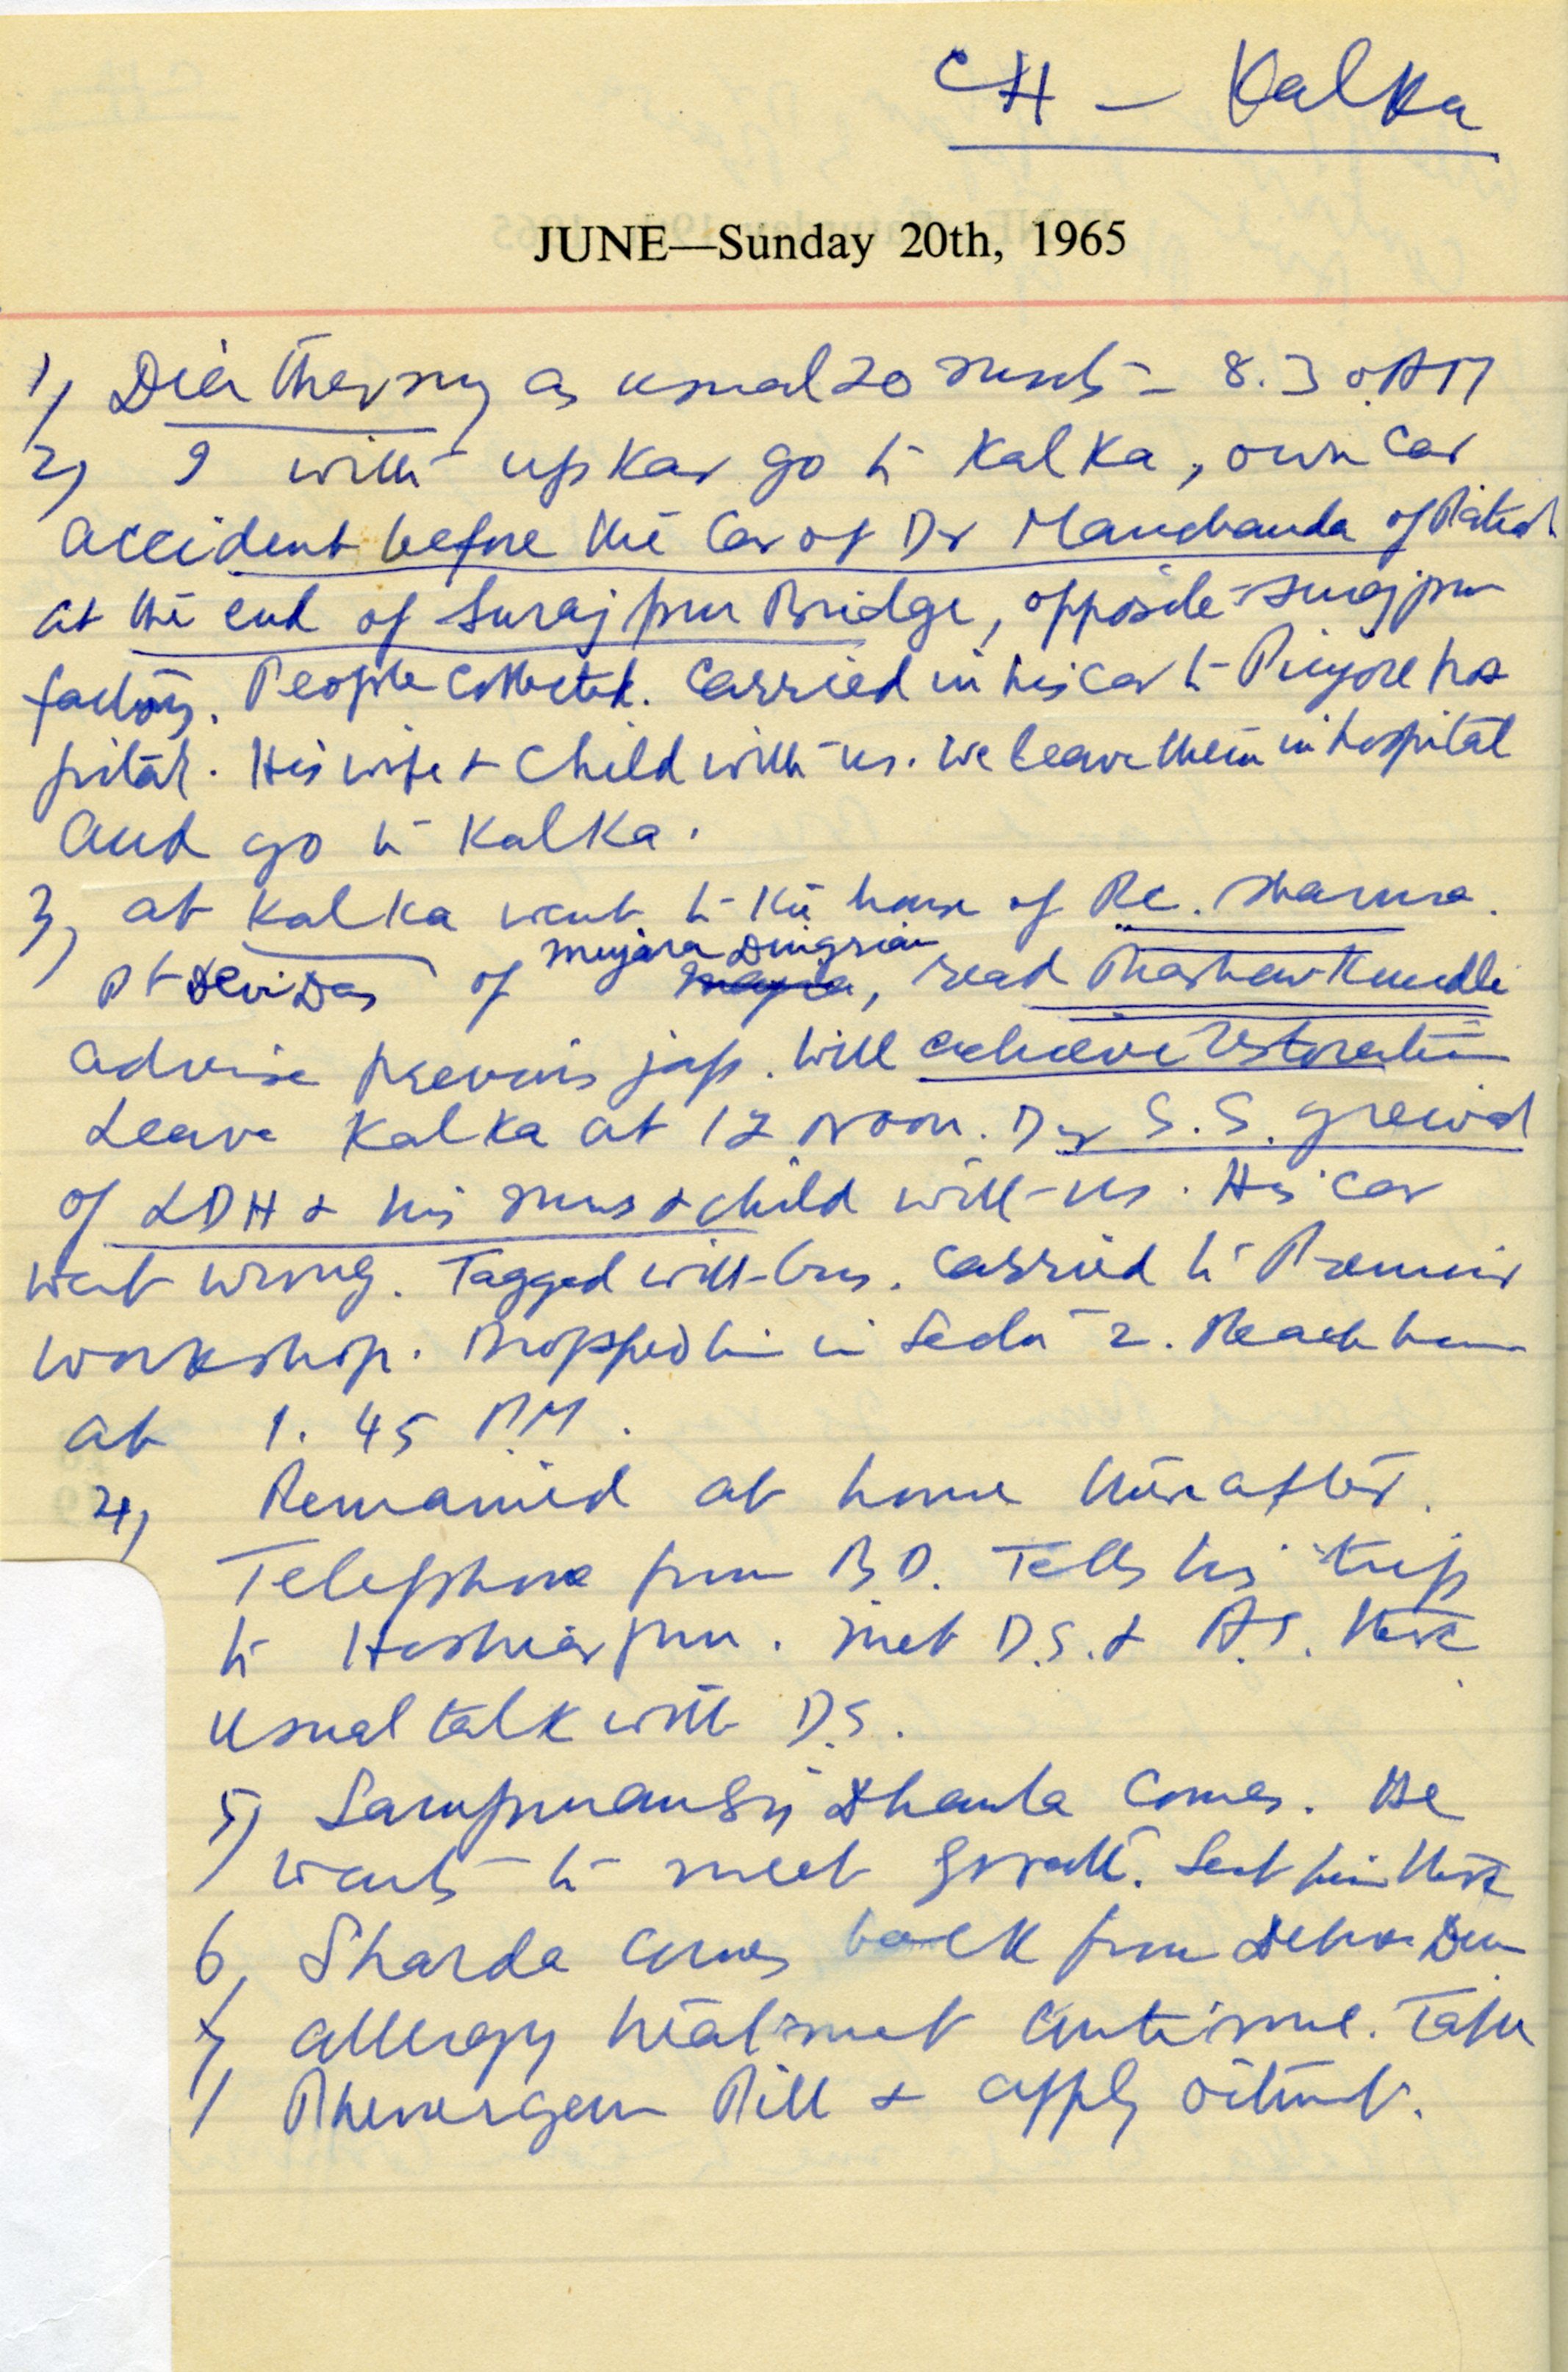 CH — Kalka
JUNE—Sunday 20th, 1965
1) Diathermy as usual 20 munts - 8.30 AM
2) I with upkar go to Kalka, own Car
accident before the Car of Dr Manchanda of
at the end of Surajpur Bridge, opposite Surajpur
factory. People Collected. Carried in his car to Pinjore hos
pital. His wife & Child with us. We leave them in hospital
and go to Kalka.
3) at Kalka went to the house of R.C. Sharma.
Pt Devi Das of Mujara Dingrian, read Prashan Kundli
advise previous jap. Will achieve restoration
Leave Kalka at 12 Noon. Dr S.S. Grewal
of LDH & his Mrs & child with us. His Car
went wrong. Tagged with bus. Carried to Premier
workshop. Dropped him in Sector 2. Reach home
at 1.45 PM.
4) Remained at home thereafter.
Telephone from B.D. Tells his trip
to Hoshiarpur. met D.S. & A.S. there
usual talk with D.S.
5) Sampuran Sg Dhaula Comes. He
wants to meet . Sent him there
6) Sharda Comes back from Dehra Dun
7) allergy treatment continue. Take
Phenergan Pill & apply ointmt.